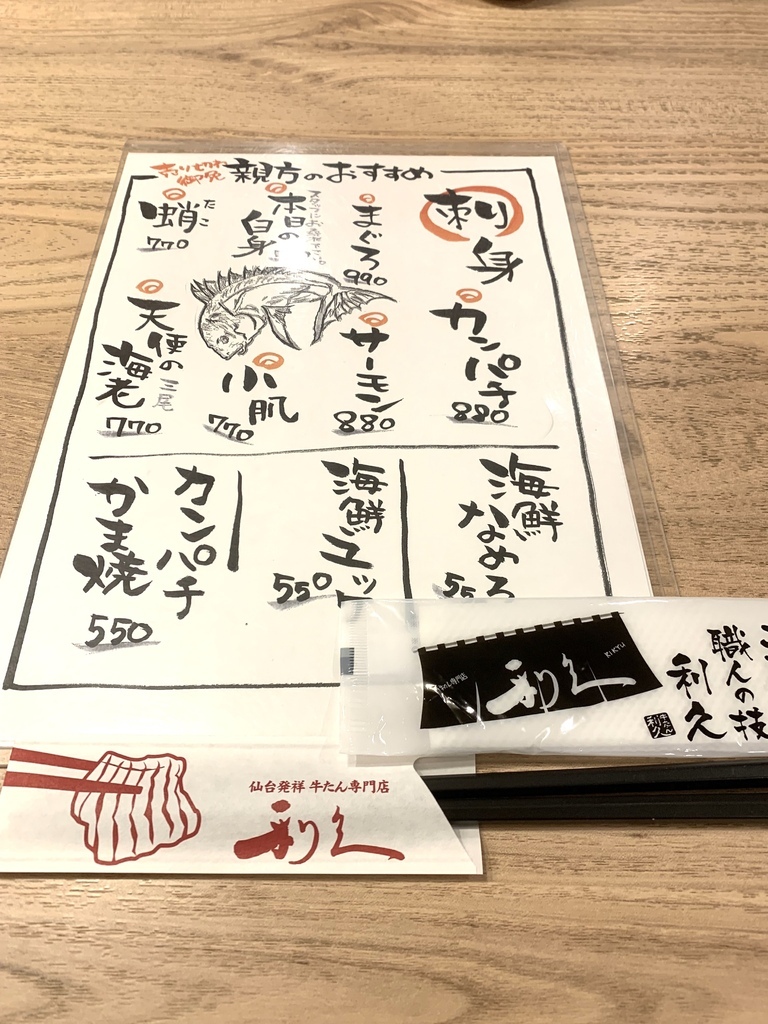 売り切れ御免
親方のおすすめ
刺身
カンパチ
880
まぐろ
990
サーモン
880
本日の
白身
小肌
770
蛸
たこ
770
天使の
海老
三尾
770
海鮮
なめろ
55
海鮮
ユッ
550
カンパチ
かま焼
550
利久
RIKYU
職人の技
利久
牛たん
利久
仙台発祥 牛たん専門店
利久